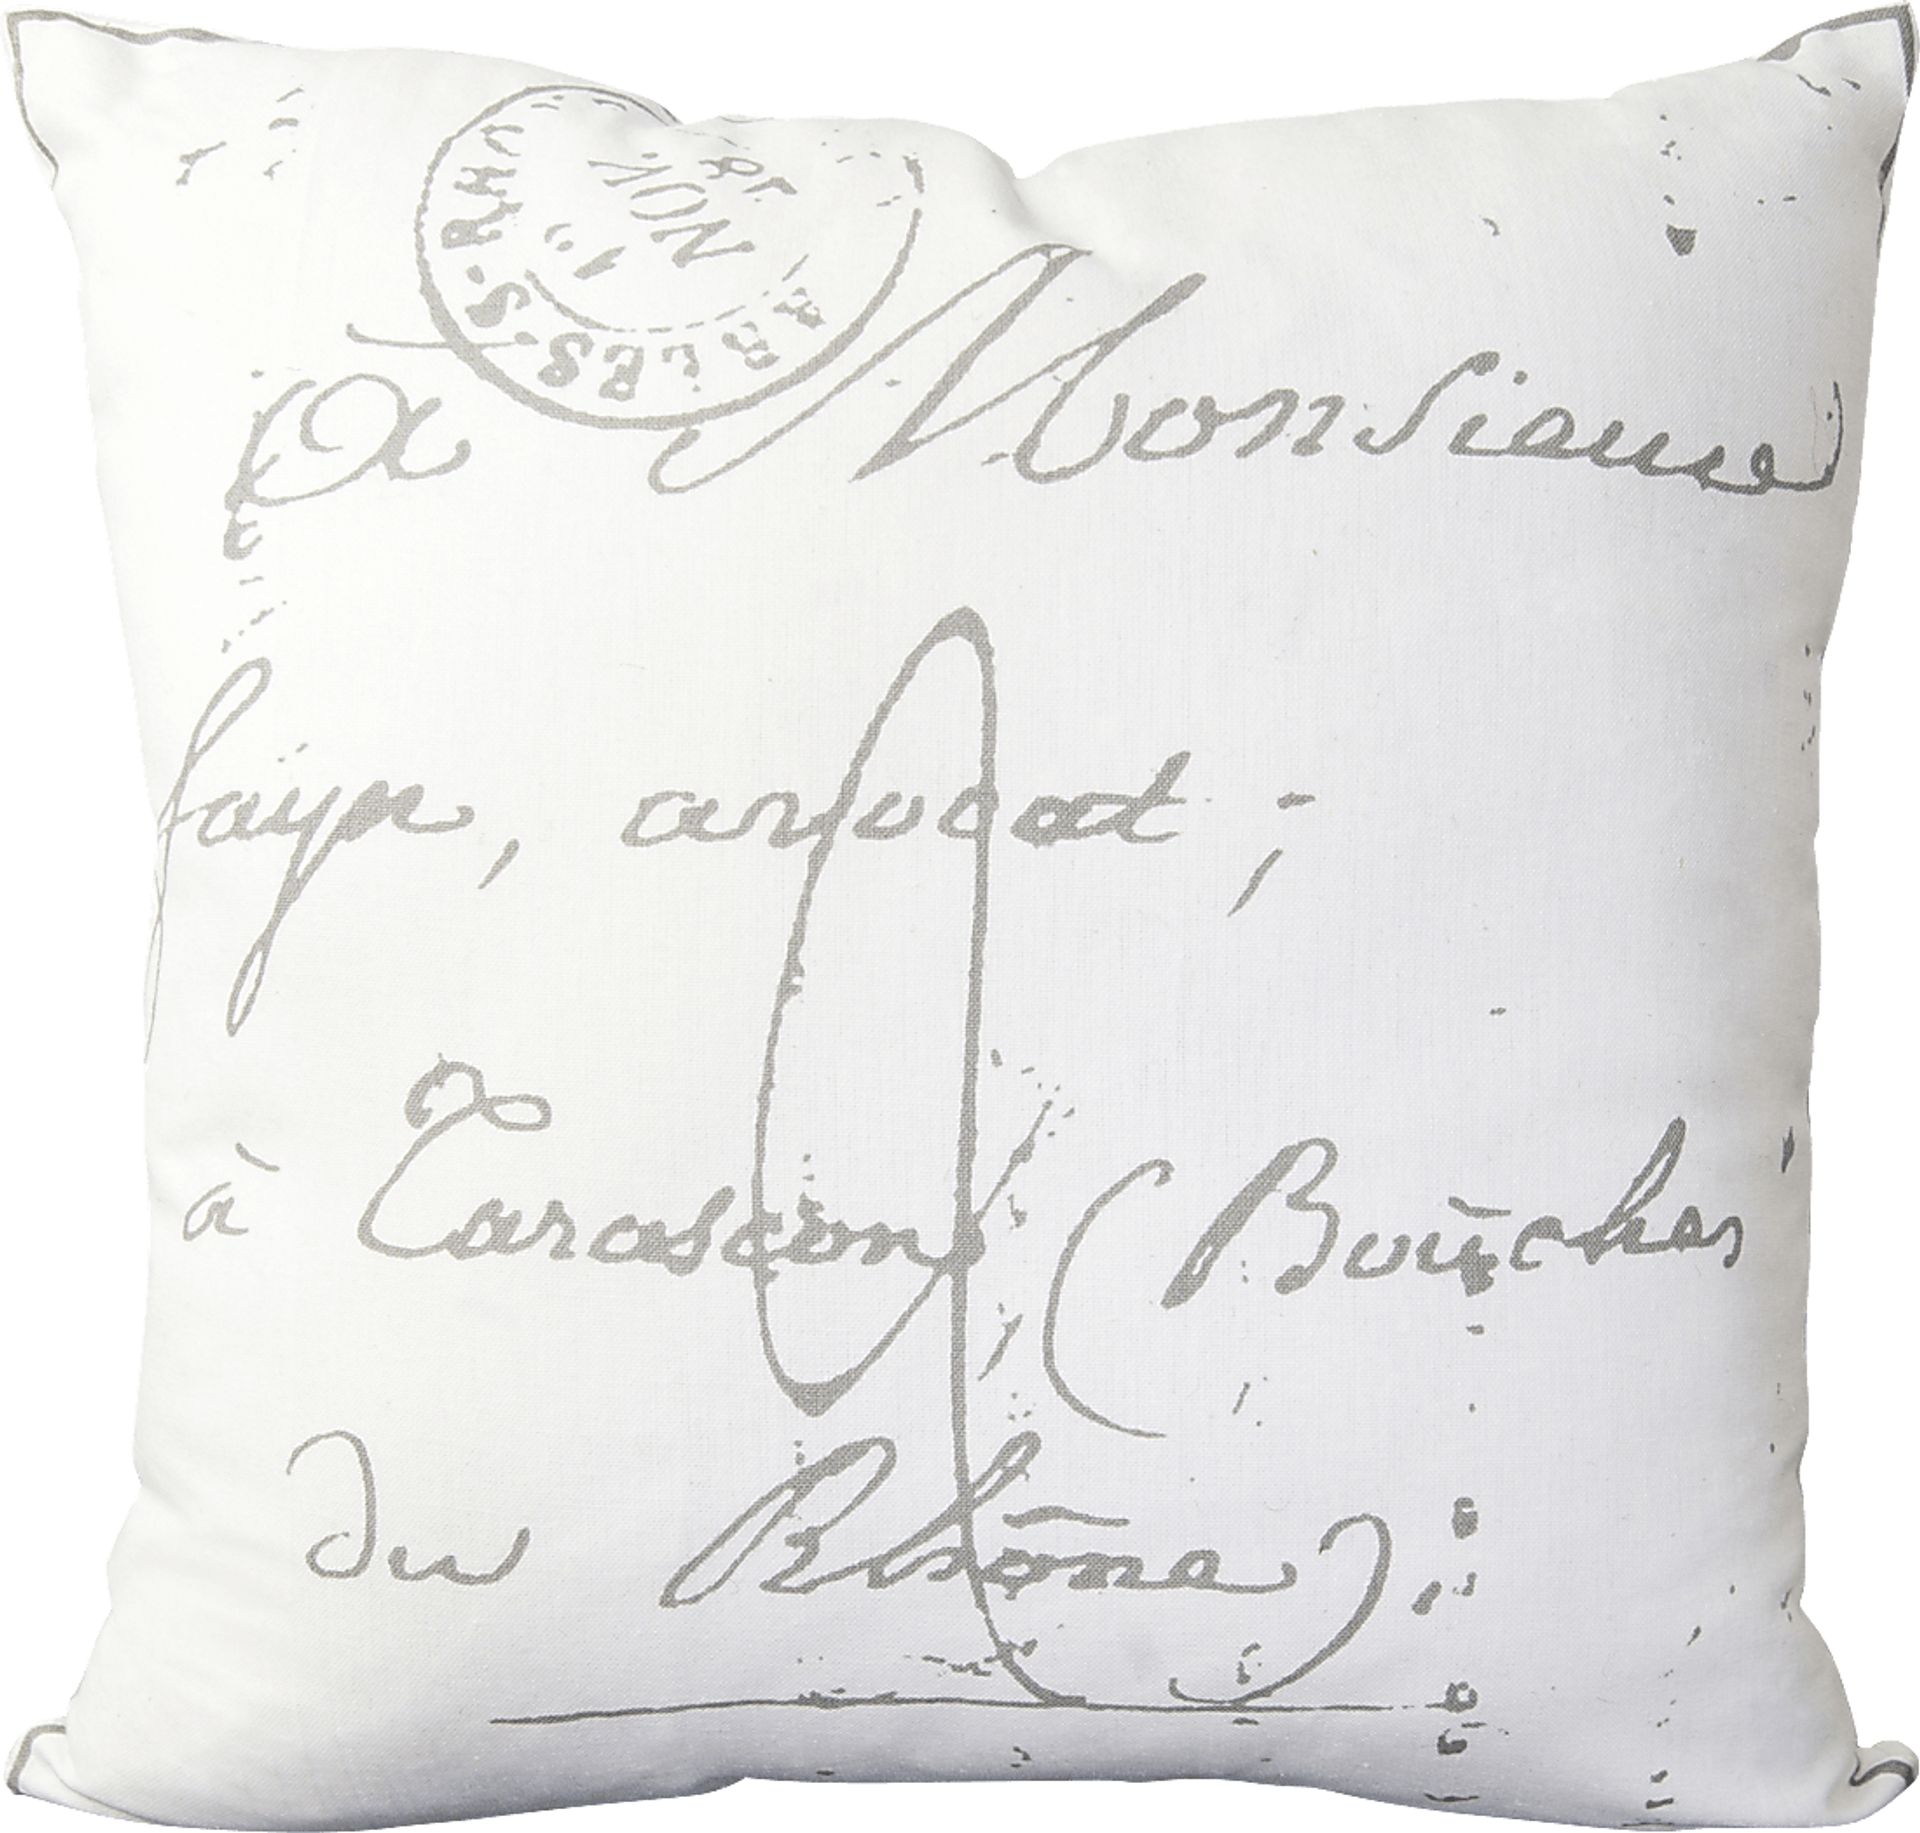 ARLES-S-RH
1
NOV
18
A Monsieur
fayn, avocat ;
à Tarascon (Bouches
du Rhône)